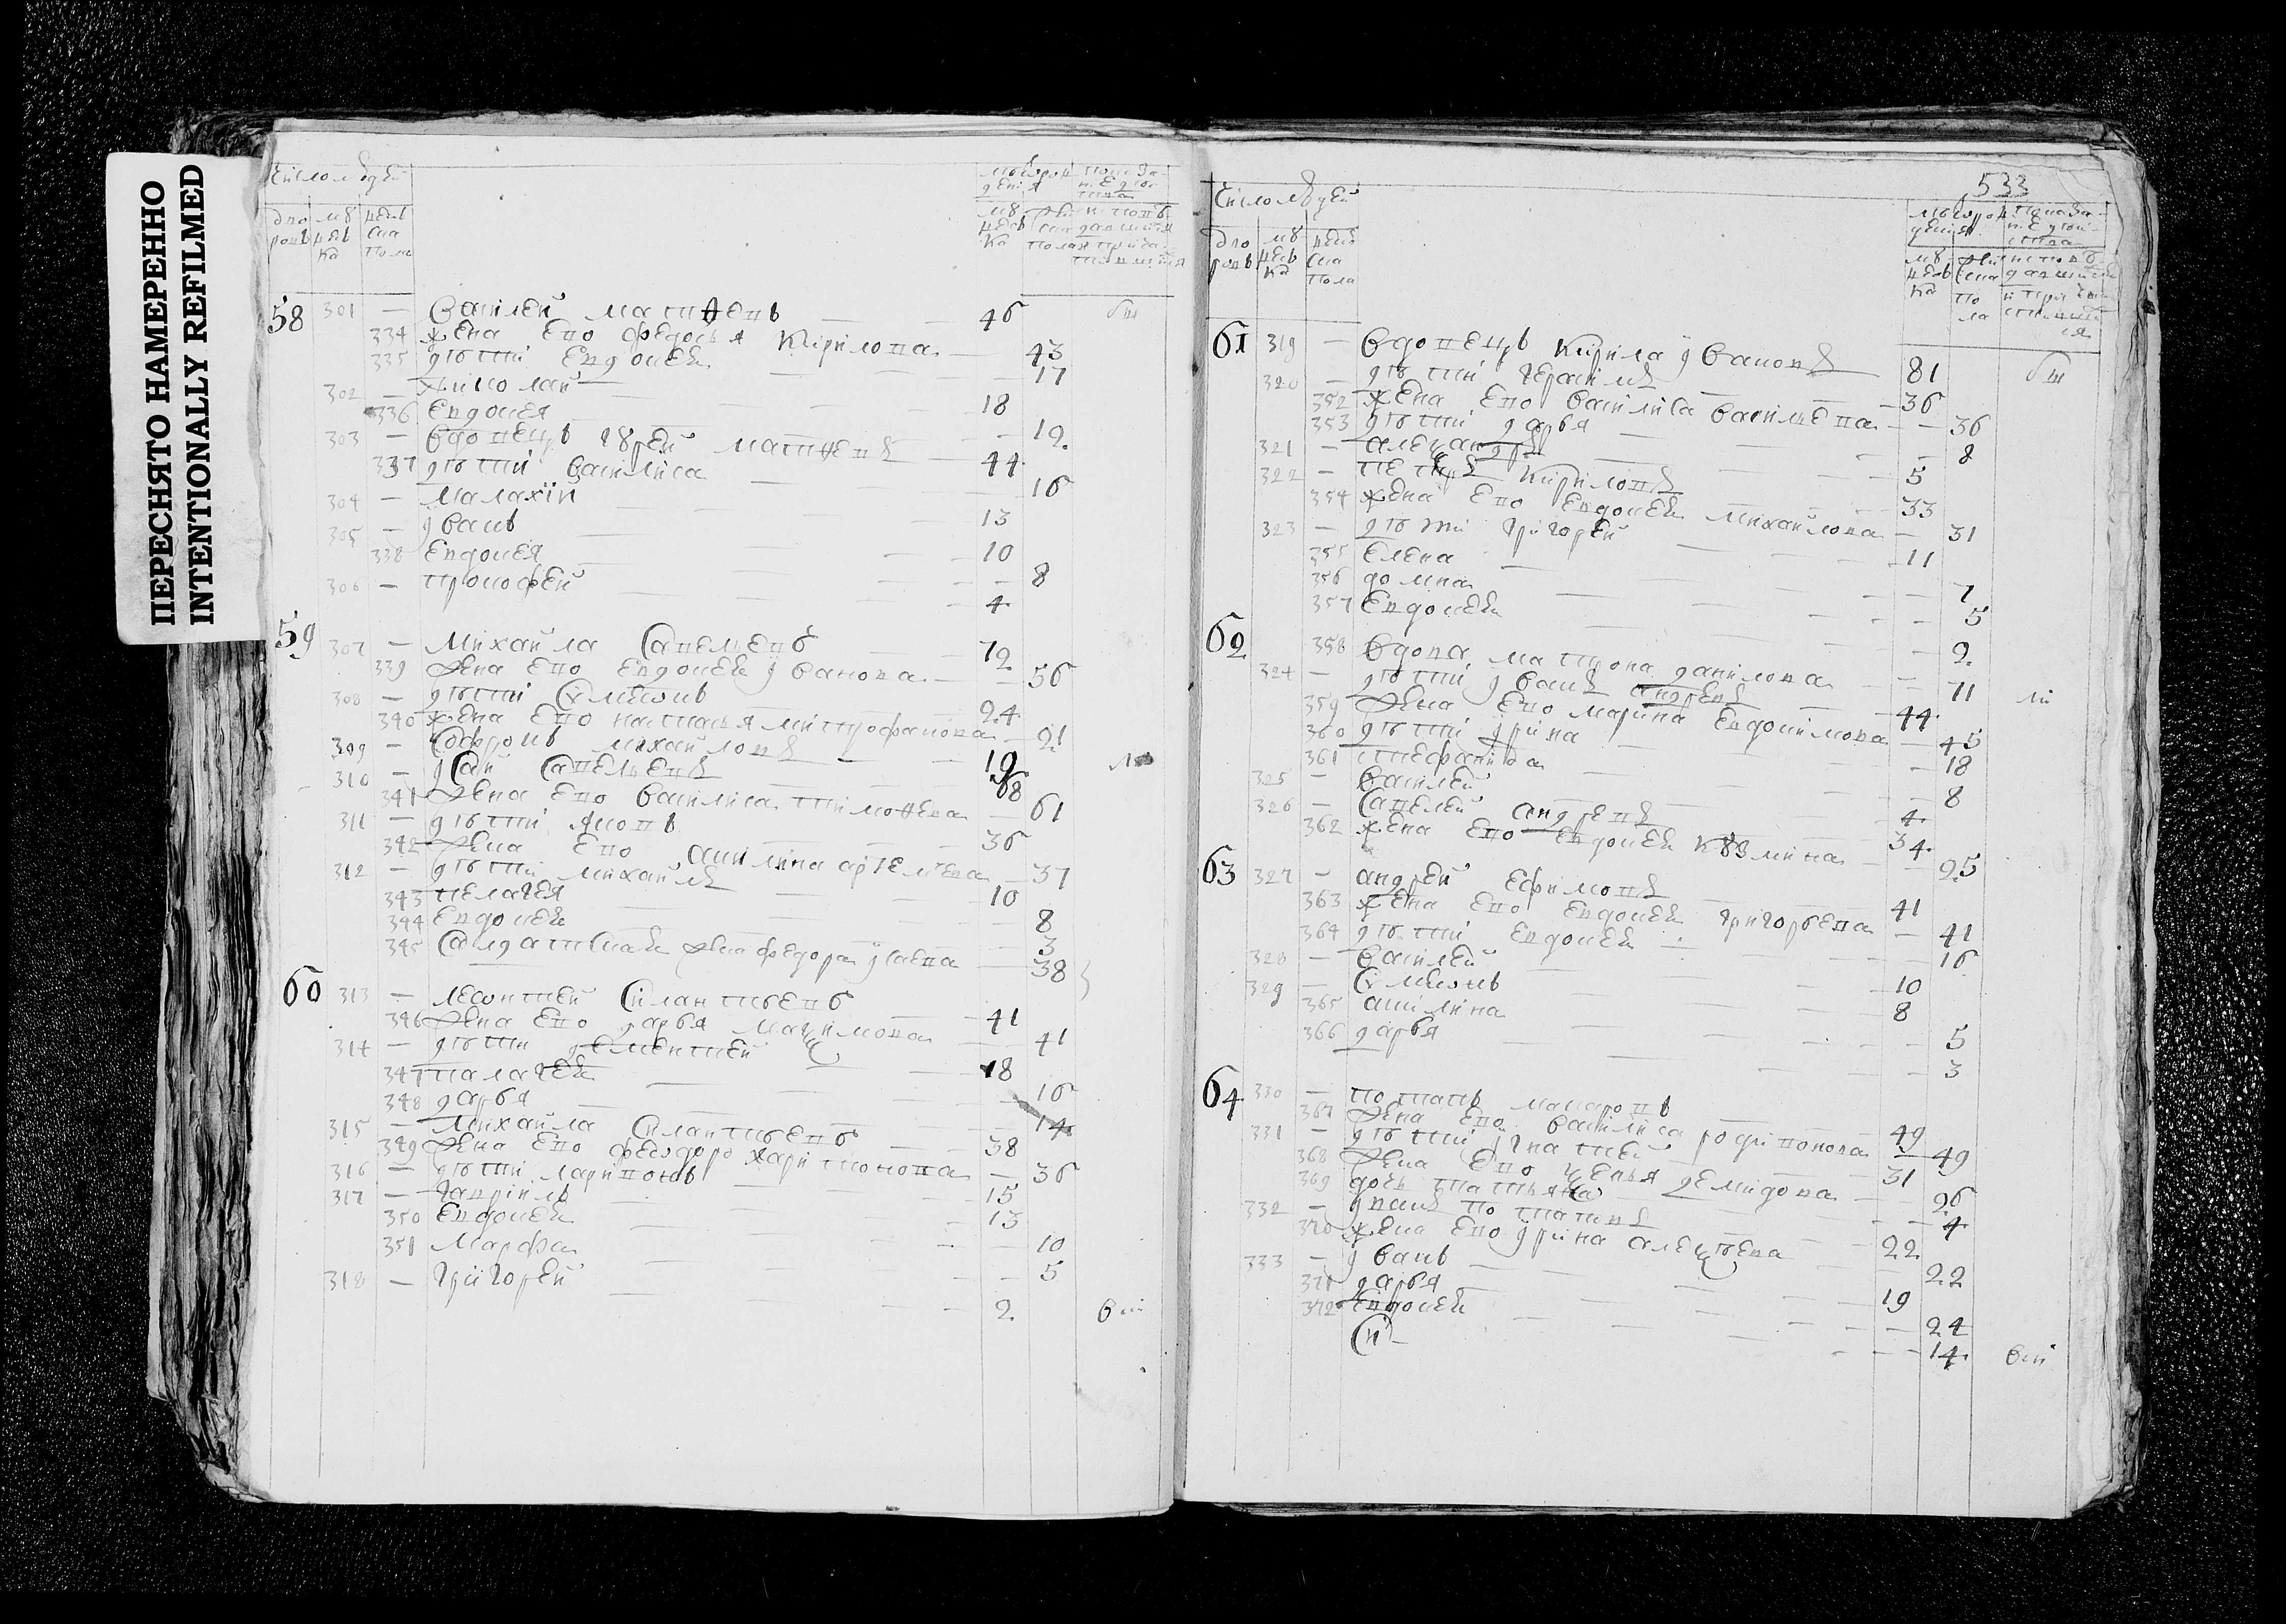 ПЕРЕСНЯТО НАМЕРЕННО
INTENTIONALLY REFILMED
число людей
дво ровъ му жевъ ка женъ ска пола
58 301 — василей матѳеевъ 46
334 жена ево федосья кирилова 43
335 дѣтти евдокея 17
302 — николай 18
336 евдокея 12
303 — вдовецъ гурей матѳеевъ 44
337 дѣтти василиса 16
304 — малахїи 13
305 — иванъ 10
338 евдокея 8
306 — прокофей 4
59 307 — михайла савельевъ 72
339 жена ево евдокея иванова 56
308 — дѣтти сѵмеонъ 24
340 жена ево настасья митрофанова 21
309 — софронъ михайловъ 19
310 — исай савельевъ 68
341 жена ево василиса тимоѳева 61
311 — дѣтти яковъ 36
342 жена ево акилина артемева 37
312 — дѣтти михайла 10
343 пелагея 8
344 евдокея 3
345 салдатская жена федора исаева 38
60 313 — леѡнтей силантьевъ 41
346 жена ево дарья максимова 41
314 — дѣтти дементей 18
347 палагея 16
348 дарья 14
315 — михайла силантьевъ 38
349 жена ево феѡдора харитонова 36
316 — дѣтти ларивонъ 15
317 — гаврїилъ 13
350 евдокея 10
351 марфа 5
318 — григорей 2
533
число людей
дво ровъ му жевъ ка женъ ска пола
61 319 — вдовецъ кирила ивановъ 81
320 — дѣтти герасимъ 36
352 жена ево василиса васильева 36
353 дѣтти дарья 8
321 — александръ 5
322 — петръ кириловъ 33
354 жена ево евдокея михайлова 31
323 — дѣтти григорей 11
355 елена 7
356 домна 5
357 евдокея 2
62 358 вдова матрона данилова 71
324 — дѣтти иванъ андреевъ 44
359 жена ево марина евдокимова 45
360 дѣтти ирина 18
361 стефанида 8
325 — василей 4
326 — савелей андреевъ 34
362 жена ево евдокея кузмина 25
63 327 — андрей ефимовъ 41
363 жена ево евдокея григорьева 41
364 дѣтти евдокея 16
328 — василей 10
329 — сѵмеонъ 8
365 акилина 5
366 дарья 3
64 330 — потапъ макаровъ 49
367 жена ево василиса родивонова 49
331 — дѣтти игнатей 31
368 жена ево ксенья демидова 26
369 дочь татьяна 4
332 — иванъ потаповъ 22
370 жена ево ирина алексѣева 22
333 — иванъ 19
371 дарья 24
372 евдокея 14